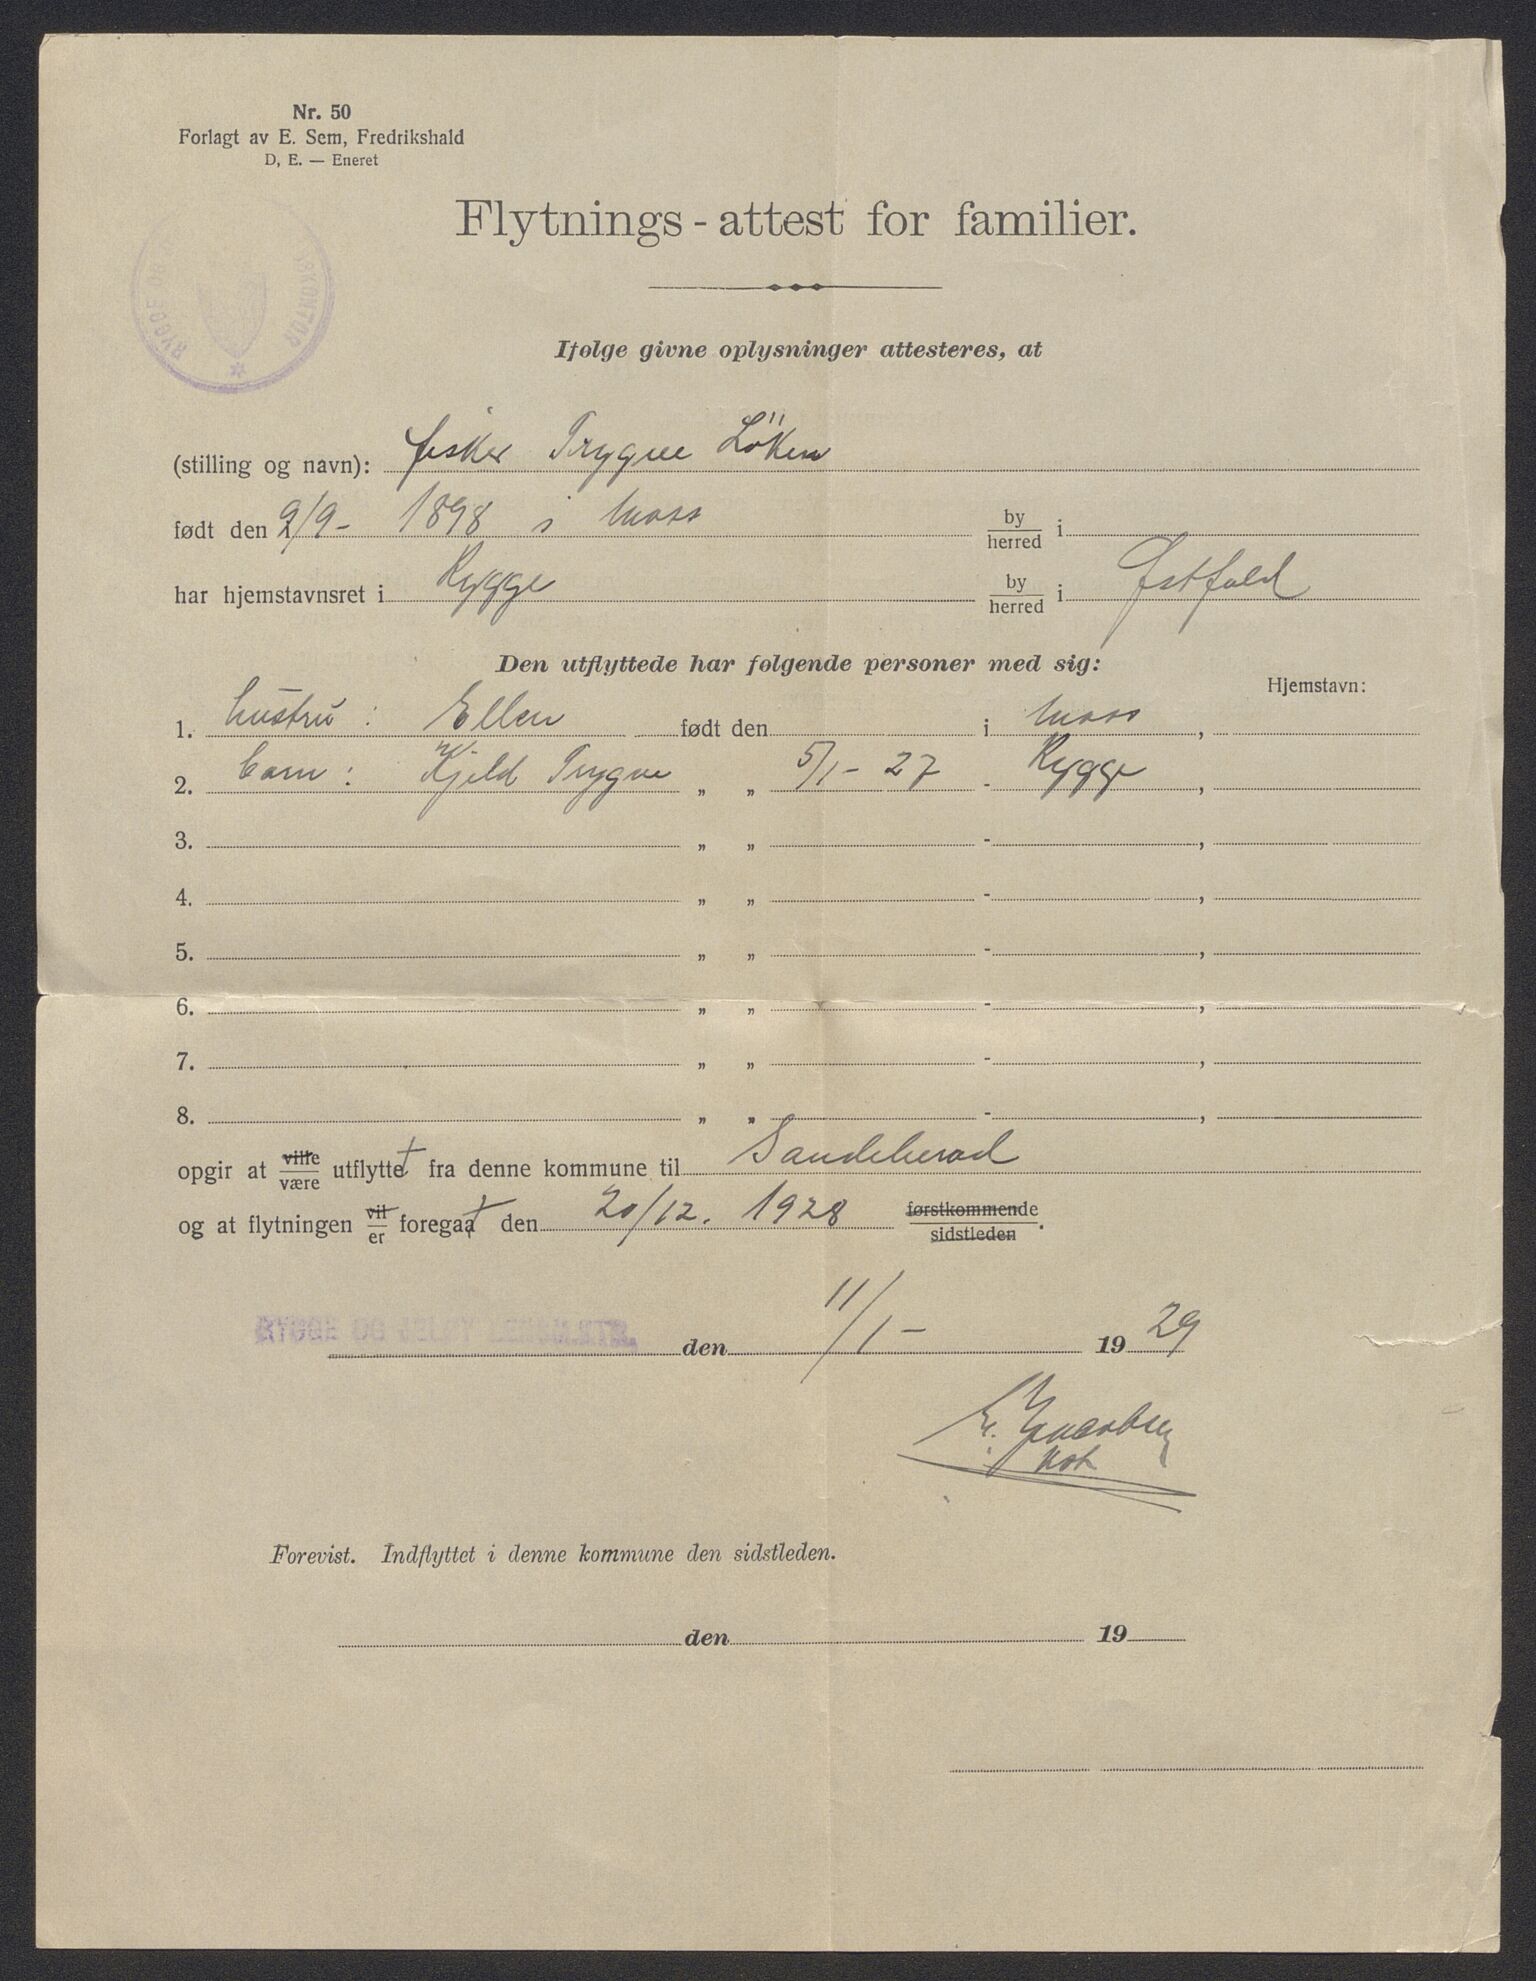 Nr. 50
Forlagt av E. Sem, Fredrikshald
D, E. — Eneret
Flytnings-attest for familier.
Ifølge givne oplysninger attesteres, at
(stilling og navn): fisker Trygve Löken
født den 9/9- 1898 i Moss by herred i
har hjemstavnsret i Rygge by herred i Østfold
Den utflyttede har følgende personer med sig:
Hjemstavn:
1. hustru: Ellen født den i Moss,
2. barn: Kjeld Trygve „ „ 5/1- 27 - Rygge,
3. „ „ - ,
4. „ „ - ,
5. „ „ - ,
6. „ „ - ,
7. „ „ - ,
8. „ „ - ,
opgir at ville være utflyttet fra denne kommune til Sandeherad
og at flytningen vil er foregaat den 20/12. 1928 førstkommende sidstleden.
RYGGE OG den 11/1- 1929
E. Jacobsen
Forevist. Indflyttet i denne kommune den sidstleden.
den 19